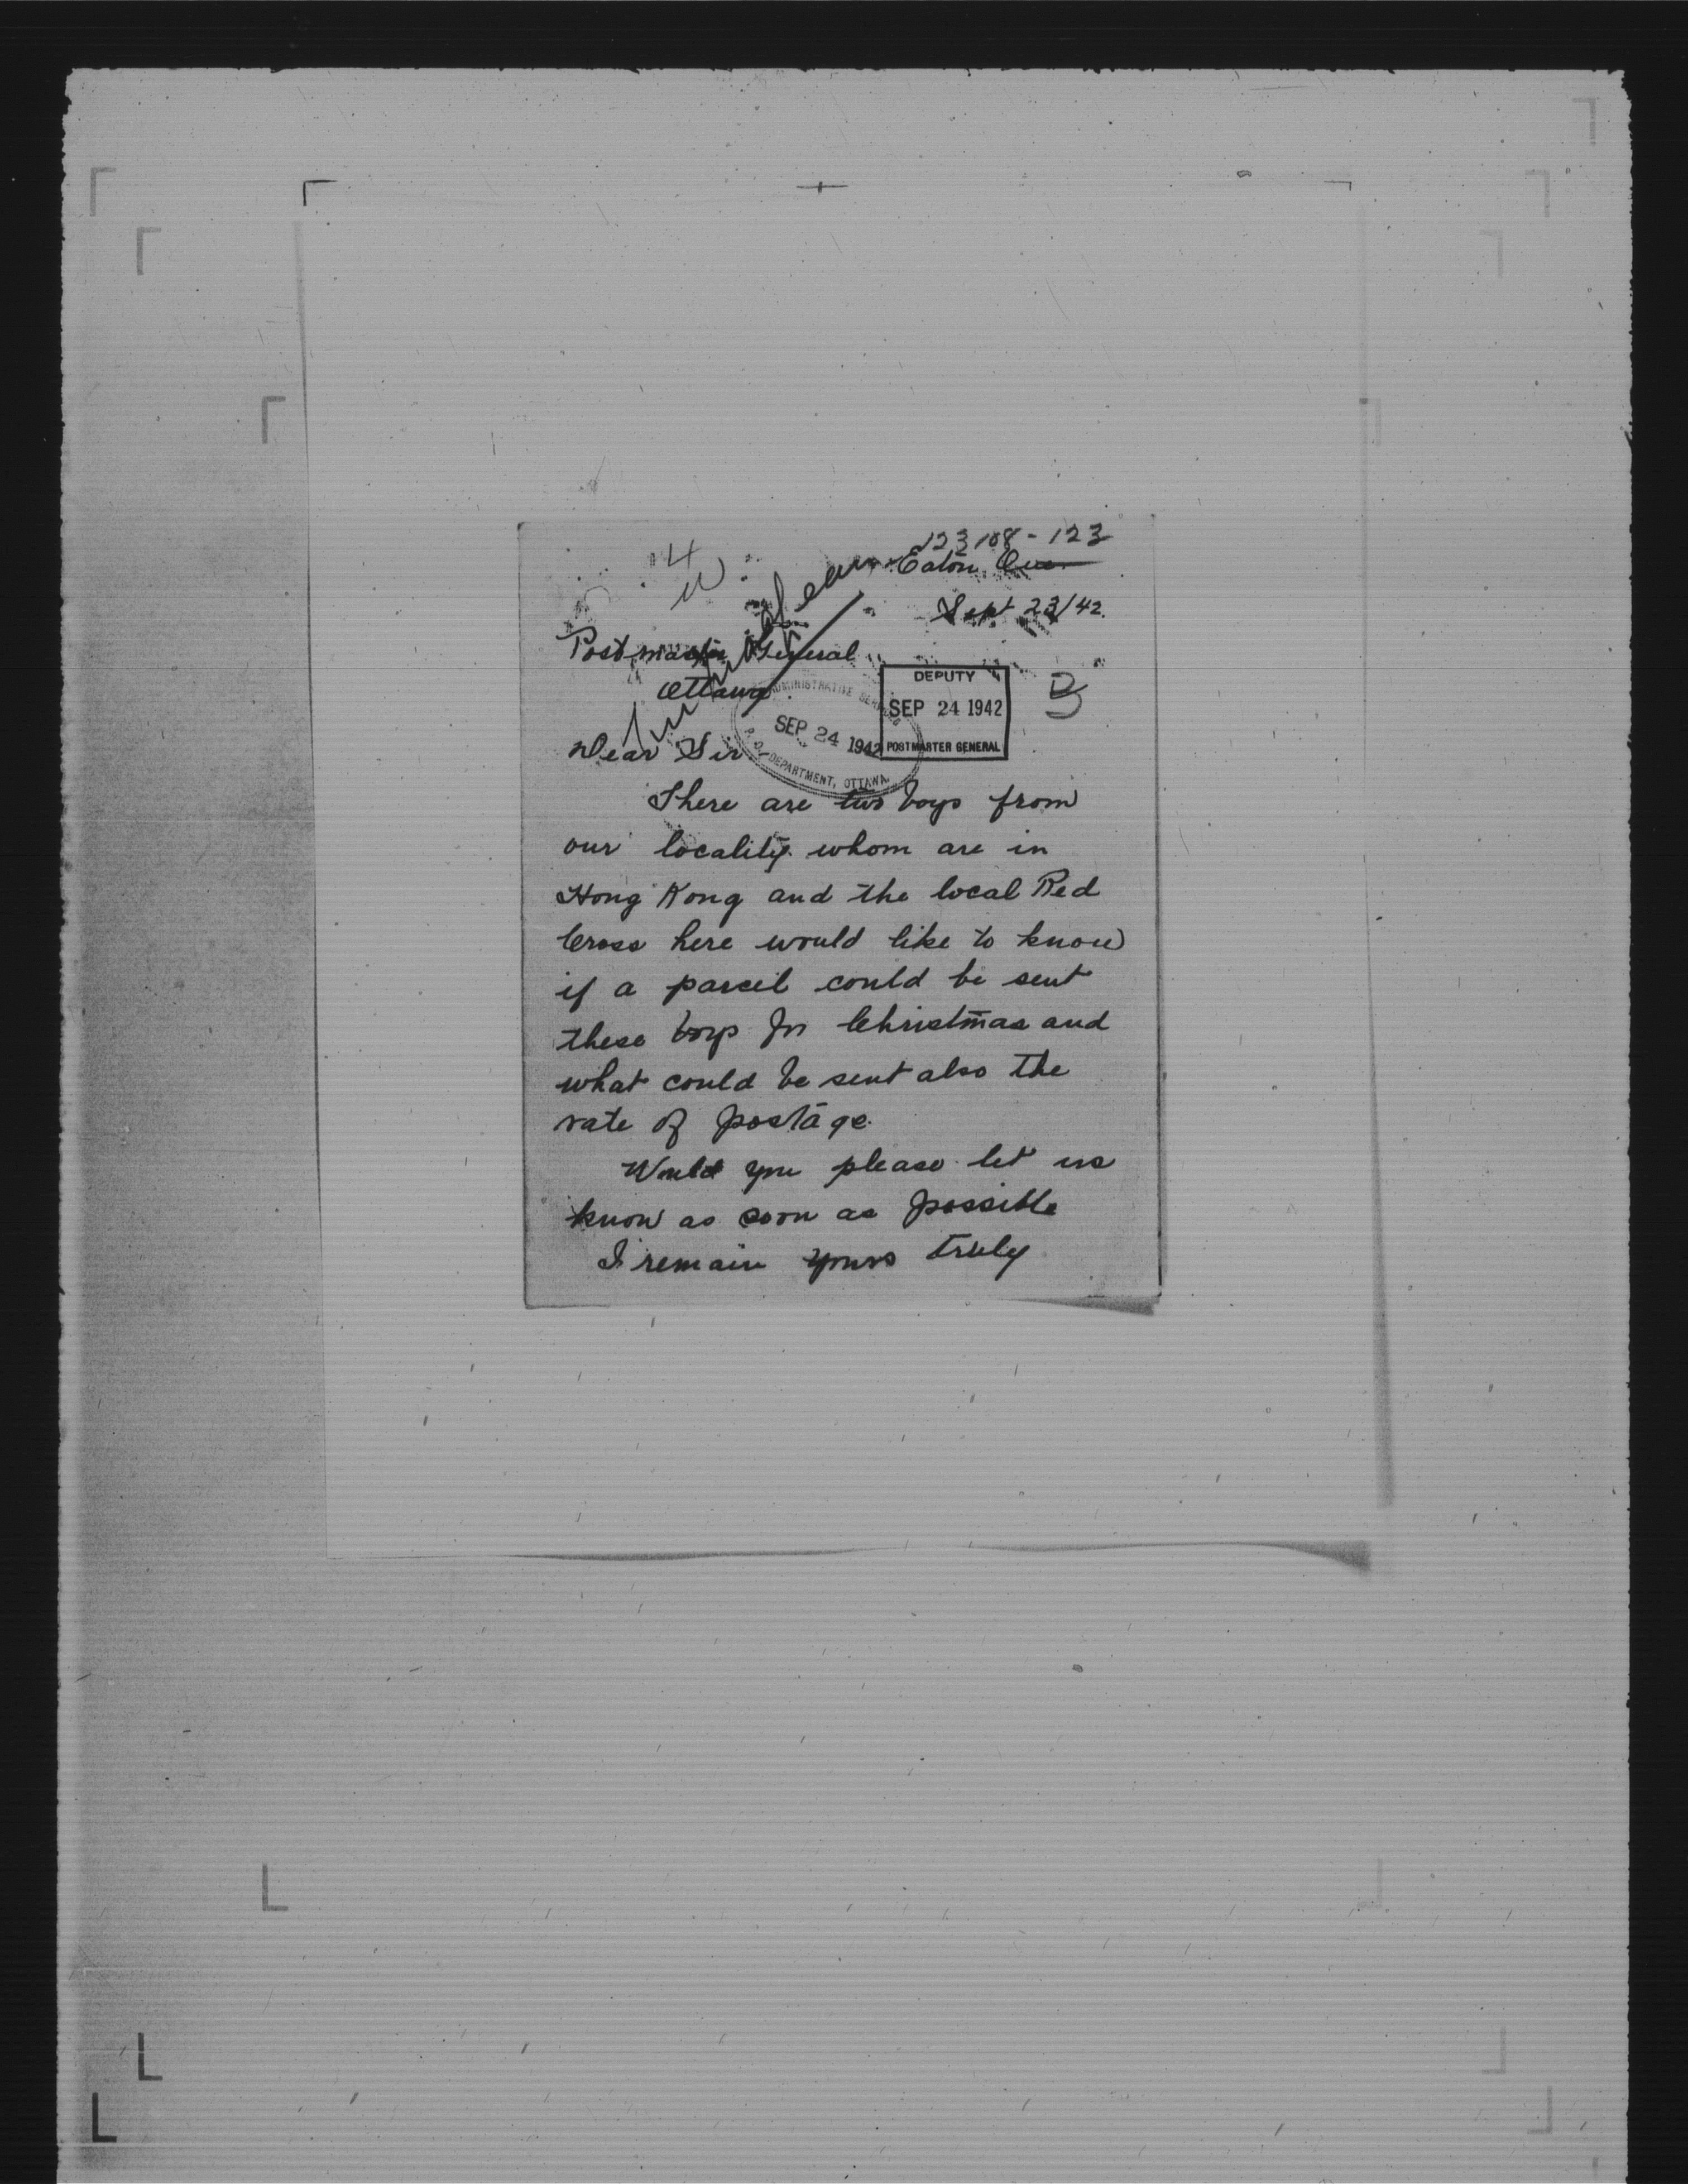 123108-123
Eaton, Que
Sept 23/42.
14
W
Postmaster General
Ottawa.
ADMINISTRATIVE
SEP 24 1942
P.O. DEPARTMENT, OTTAWA
DEPUTY
SEP 24 1942
POSTMASTER GENERAL
B
Dear Sir
There are two boys from
our locality whom are in
Hong Kong and the local Red
Cross here would like to know
if a parcel could be sent
these boys for Christmas and
what could be sent also the
rate of postage.
Would you please let us
know as soon as possible
I remain yours truly